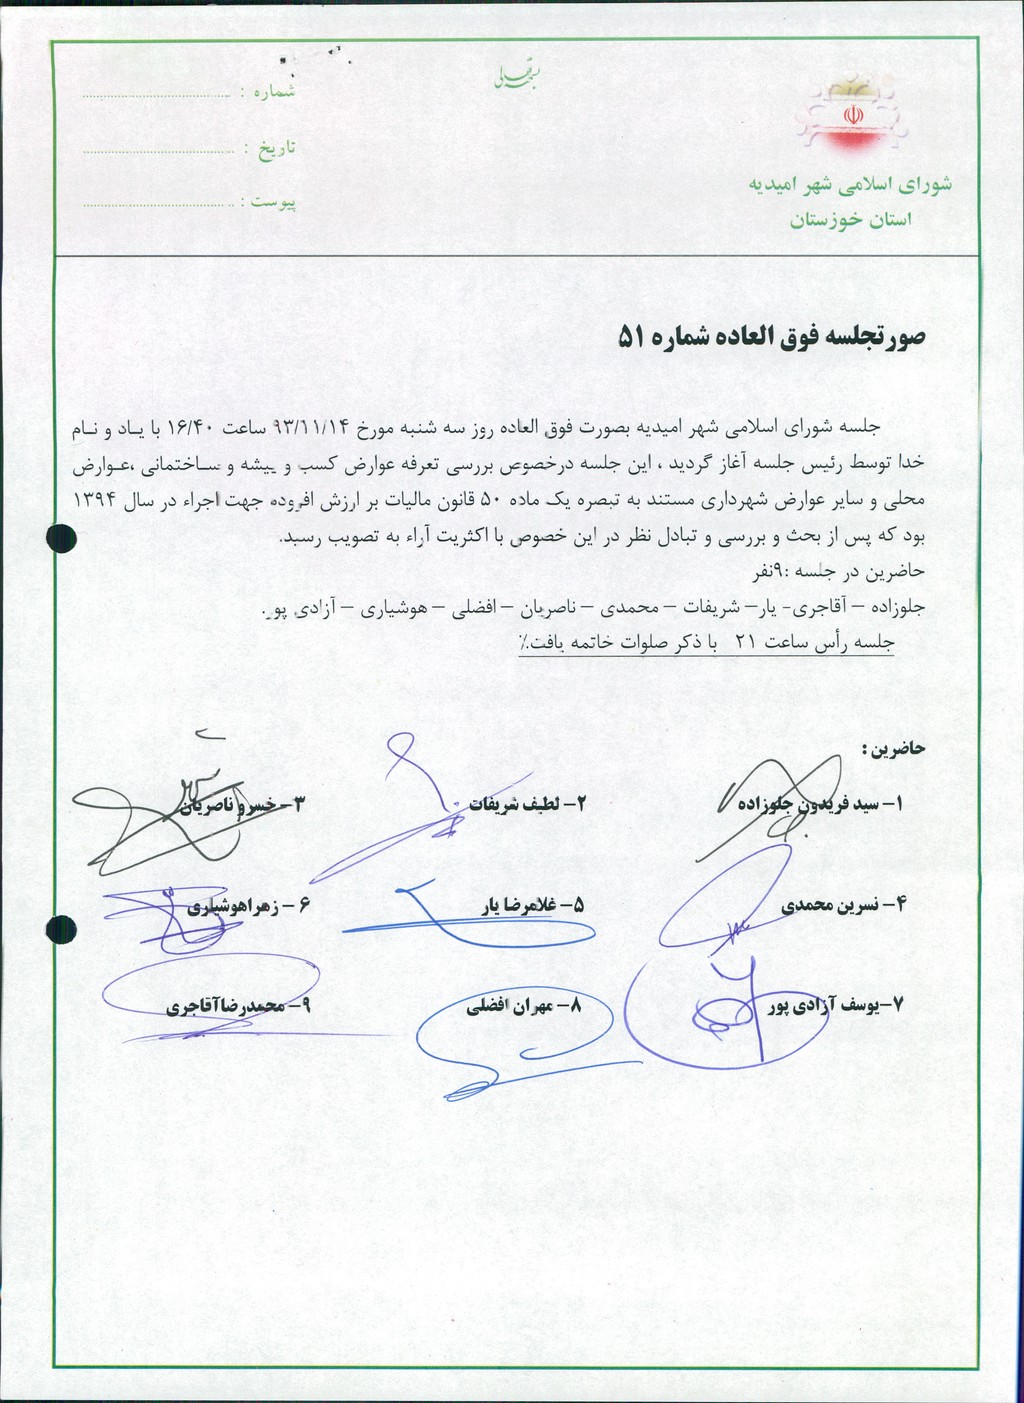 بسمه تعالی
شورای اسلامی شهر امیدیه
استان خوزستان
شماره :
تاریخ :
پیوست :
صورتجلسه فوق العاده شماره ۵۱
جلسه شورای اسلامی شهر امیدیه بصورت فوق العاده روز سه شنبه مورخ ۹۳/۱۱/۱۴ ساعت ۱۶/۴۰ با یاد و نام
خدا توسط رئیس جلسه آغاز گردید ، این جلسه درخصوص بررسی تعرفه عوارض کسب و پیشه و ساختمانی ،عوارض
محلی و سایر عوارض شهرداری مستند به تبصره یک ماده ۵۰ قانون مالیات بر ارزش افزوده جهت اجراء در سال ۱۳۹۴
بود که پس از بحث و بررسی و تبادل نظر در این خصوص با اکثریت آراء به تصویب رسید.
حاضرین در جلسه :۹نفر
جلوزاده – آقاجری- یار– شریفات – محمدی – ناصریان – افضلی – هوشیاری – آزادی پور.
جلسه رأس ساعت ۲۱ با ذکر صلوات خاتمه یافت./
حاضرین :
۱- سید فریدون جلوزاده ۲- لطیف شریفات ۳- خسرو ناصریان
۴- نسرین محمدی ۵- غلامرضا یار ۶ - زهراهوشیاری
۷-یوسف آزادی پور ۸- مهران افضلی ۹- محمدرضاآقاجری